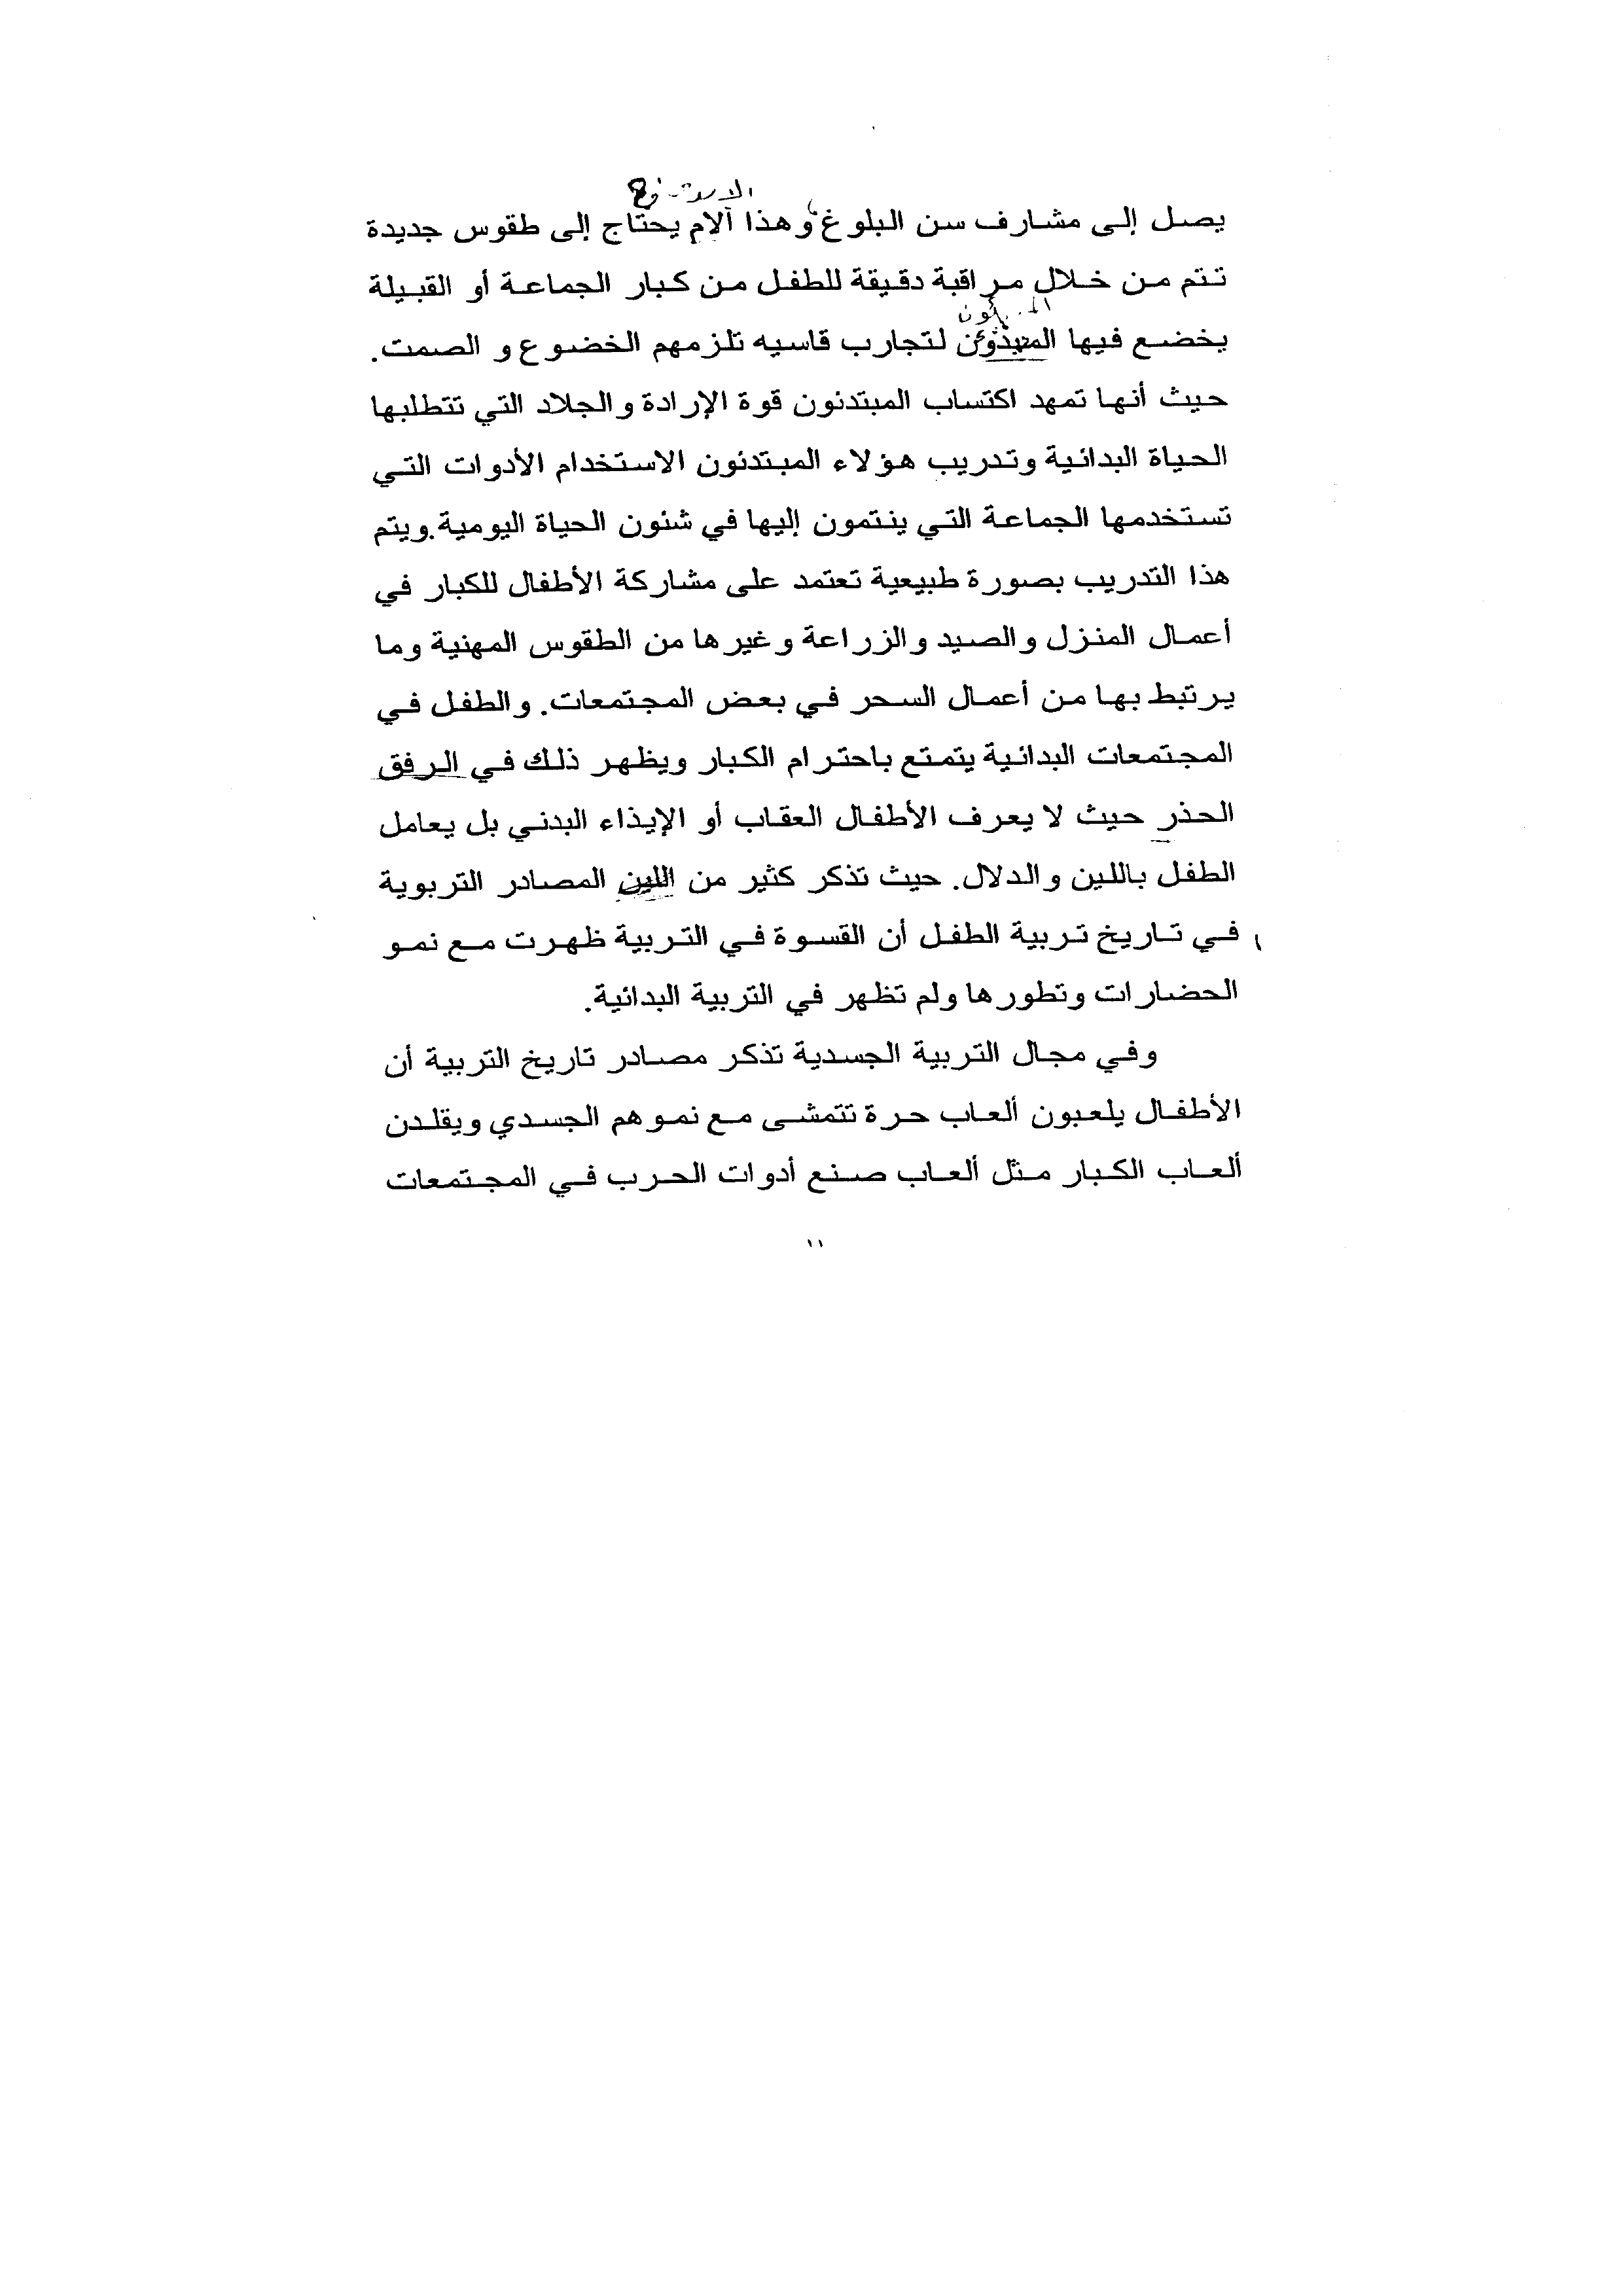 يصل إلى مشارف سن البلوغ وهذا آلام يحتاج إلى طقوس جديدة
تتم من خلال مراقبة دقيقة للطفل من كبار الجماعة أو القبيلة
يخضع فيها لتجارب قاسيه تلزمهم الخضوع و الصمت.
حيث أنها تمهد اكتساب المبتدئون قوة الإرادة والجلاد التي تتطلبها
الحياة البدائية وتدريب هؤلاء المبتدئون الاستخدام الأدوات التي
تستخدمها الجماعة التي ينتمون إليها في شئون الحياة اليومية.ويتم
هذا التدريب بصورة طبيعية تعتمد على مشاركة الأطفال للكبار في
أعمال المنزل والصيد والزراعة وغيرها من الطقوس المهنية وما
يرتبط بها من أعمال السحر في بعض المجتمعات. والطفل في
المجتمعات البدائية يتمتع باحترام الكبار ويظهر ذلك في الرفق
الحذر حيث لا يعرف الأطفال العقاب أو الإيذاء البدني بل يعامل
الطفل باللين والدلال. حيث تذكر كثير من اللين المصادر التربوية
في تاريخ تربية الطفل أن القسوة في التربية ظهرت مع نمو
الحضارات وتطورها ولم تظهر في التربية البدائية.
وفي مجال التربية الجسدية تذكر مصادر تاريخ التربية أن
الأطفال يلعبون ألعاب حرة تتمشى مع نموهم الجسدي ويقلدن
ألعاب الكبار مثل ألعاب صنع أدوات الحرب في المجتمعات
١١